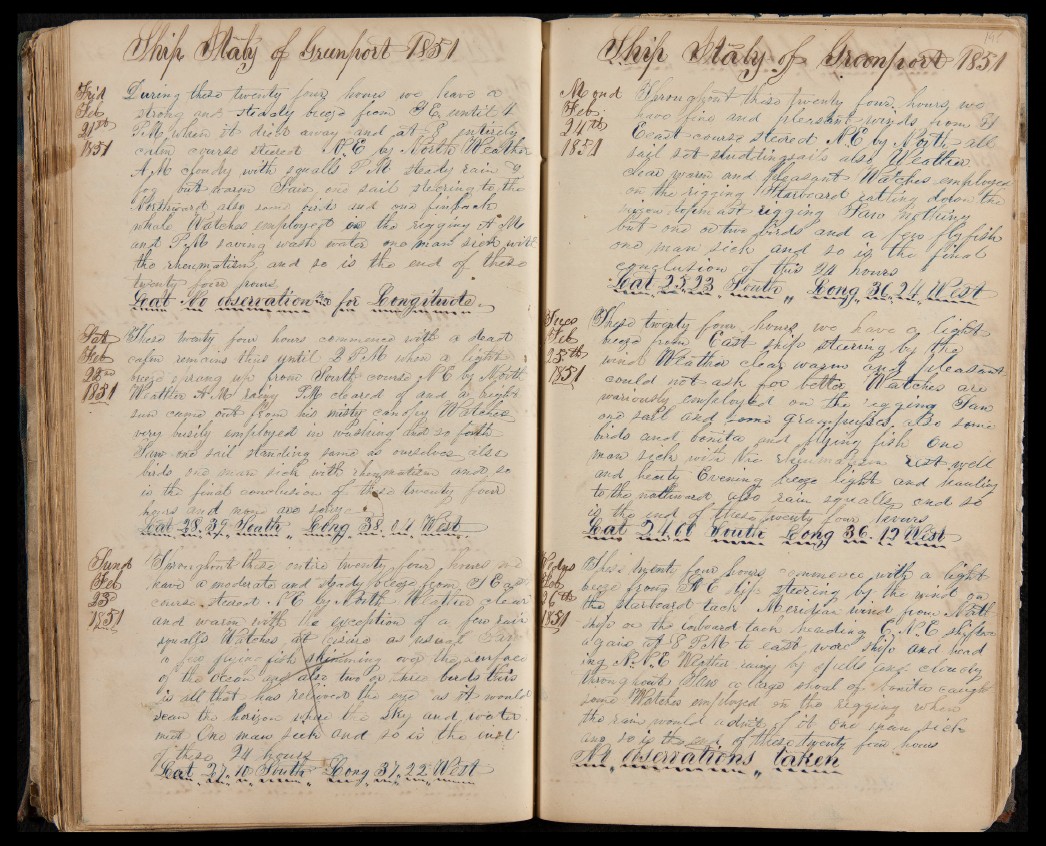 Ship Italy of Greenport 1851
Frid
Feb
21st
1851
During these twenty four hours we have a
strong and steady breeze from SE until 4
PM when it died away and at 8 entirely
calm course steered N.E by North Weather
A.M cloudy with squalls P.M steady rain &
fog but warm Saw one sail steering to the
Northward also some birds and one finback
whale Watches employed in the rigging A.M
and P.M saving wash water one man sick with
the rheumatism, and so is the end of these
twenty four hours.
Leat No observation for Longitude
Sat
Feb
22
1851
These twenty four hours commence with a dead
calm remains thus until 2 P.M when a light
breeze sprung up from South course NE by North
Weather A.M rainy P.M cleared of and a bright
sun came out from his misty canopy Watches
very busily employed in washing and so forth
Saw one sail standing same as ourselves also
birds one man sick with rheumatism and so
is the final conclusion of these twenty four
hours and none are sorry
Lat 28.39 South " Long 38.04 West
Sund
Feb
23
1851
Throughout these entire twenty four hours we
have a moderate and steady breeze from S E
course steered N.E by North Weather clear
and warm with the exception of a few rain
squalls Watches at as usual Saw
a few flying fish skimming over the surface
of the Ocean and also two or three birds this
is all that has relieved the eye as it would
scan the horizon where the Sky and water
met One man sick and so is the end
of these 24 hours
Lat 27,,10 South Long 37,,22 West
Ship Italy of Greenport 1851
Mond
Feb
24th
1851
Throughout these twenty four hours, we
have fine and pleasant winds from S
East course steered NE by North all
sail set studdingsails also Weather
clear warm and pleasant Watches employed
on the rigging Starboard rattling down the
mizen topmast rigging Saw nothing
but one or two birds and a few flyfish
one man sick and so is the final
conclusion of this 24 hours
Lat 25.23 South " Long 36.24 West
Tues
Feb
25th
1851
These twenty four hours we have a light
breeze from East ship steering by the
wind Weather clear warm and pleasant
could not ask for better Watches are
variously employed on the rigging Saw
one sail and some grampuses, also some
birds and bonita and flying fish One
man sick with the rheumatism rest well
and hearty Evening breeze light and hauling
to the northward also rain squalls and so
is the end of these twenty four hours
Lat 24.00 South Long 36.12 West
Wedns
Feb
26th
1851
These twenty four hours commence with a light
breeze from N E ship steering by the wind on
the starboard tack Meridian wind from North
ship on the larboard tack heading E.N.E shifted
again at 8 P.M to east, wore ship and head
ing N.N.E Weather rainy by spells and cloudy
throughout Saw a large shoal of bonita caught
some Watches employed on the rigging when
the rain would admit of it One man sick
and so is the end of these twenty four hours
No observations " taken